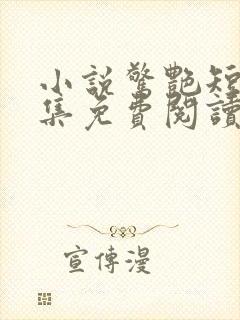 小說驚艷短
集免費閱讀
宣傳漫